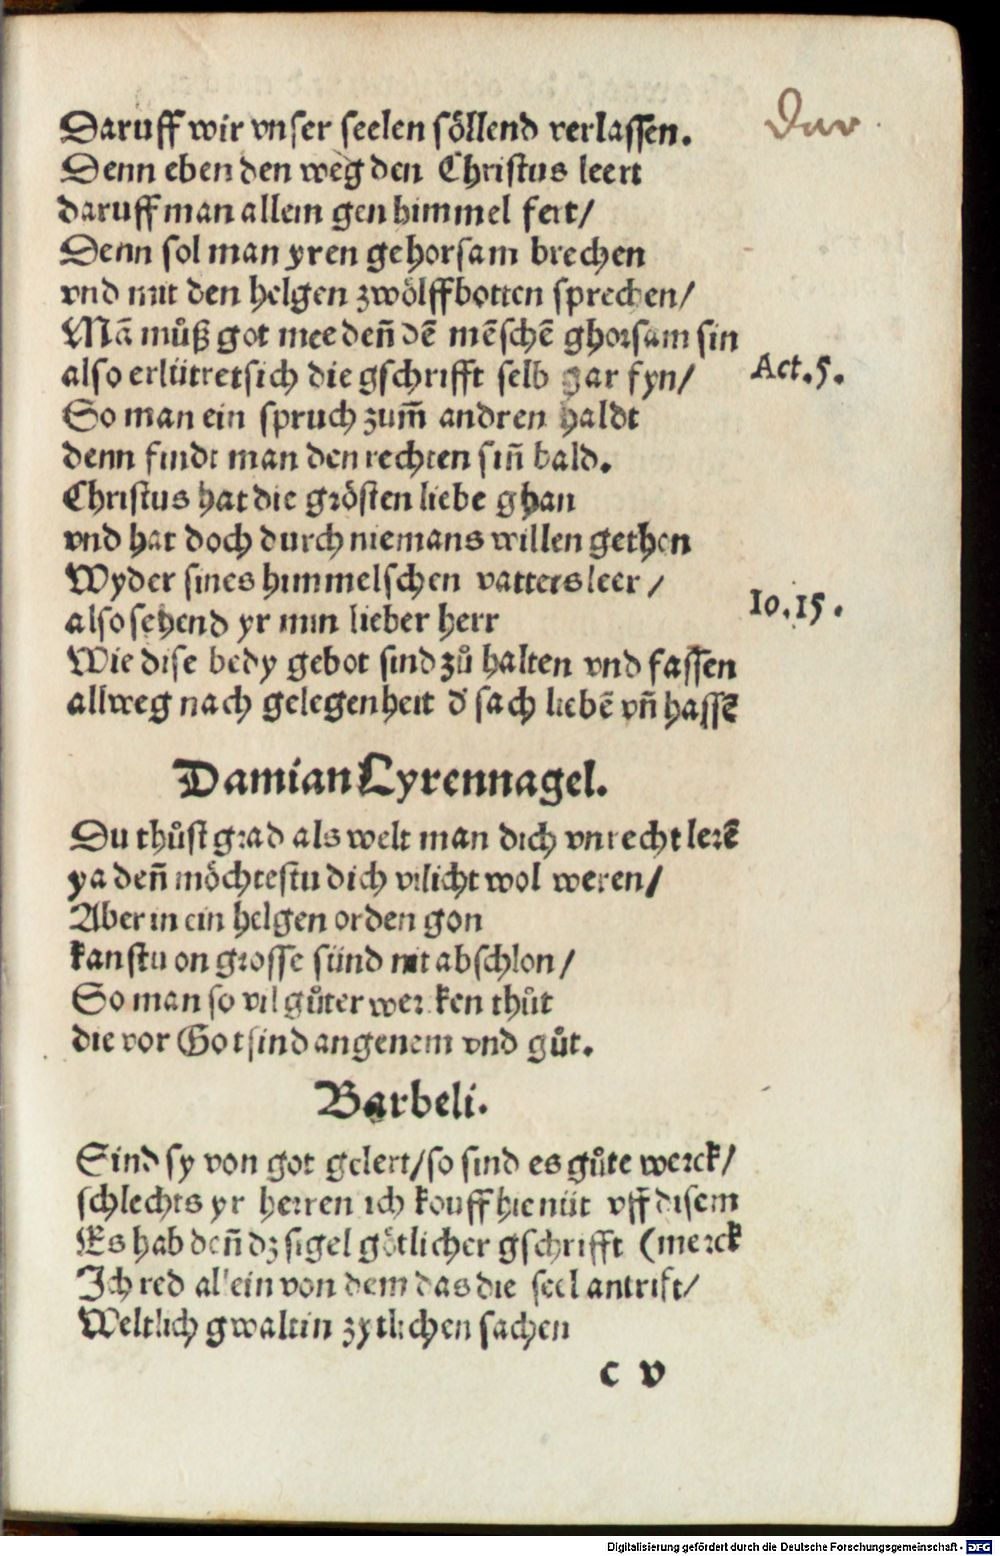 Dar
Daruff wir vnser seelen söllend verlassen.
Denn eben den weg den Christus leert
daruff man allein gen himmel fert/
Denn sol man yren gehorsam brechen
vnd mit den helgen zwölffbotten sprechen/
Mā můß got mee deñ dē mēschē ghorsam sin
Act.5.
also erlütret sich die gschrifft selb gar fyn/
So man ein spruch zum̄ andren haldt
denn findt man den rechten siñ bald.
Christus hat die grösten liebe ghan
vnd hat doch durch niemans willen gethon
Wyder sines himmelschen vatters leer/
Io.15.
also sehend yr min lieber herr
Wie dise bedy gebot sind zů halten vnd fassen
allweg nach gelegenheit d' sach liebē vñ hassē
Damian Lyrennagel.
Du thůst grad als welt man dich vnrecht lerē
ya deñ möchtestu dich vilicht wol weren/
Aber in ein helgen orden gon
kanstu on grosse sünd nit abschlon/
So man so vil gůter wercken thůt
die vor Got sind angenem vnd gůt.
Barbeli.
Sind sy von got gelert/so sind es gůte werck/
schlechts yr herren ich kouff hie nüt vff disem
Es hab deñ dz sigel götlicher gschrifft (merck
Ich red allein von dem das die seel antrift/
Weltlich gwalt in zytlichen sachen
c v
Digitalisierung gefördert durch die Deutsche Forschungsgemeinschaft - DFG